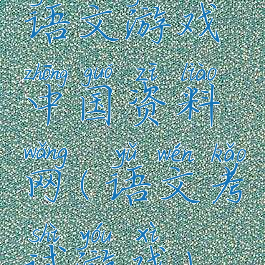 语文游戏
zhōng guó zī liào
中国资料
wǎng yǔ wén kǎo
网(语文考
shì yóu xì
试游戏)